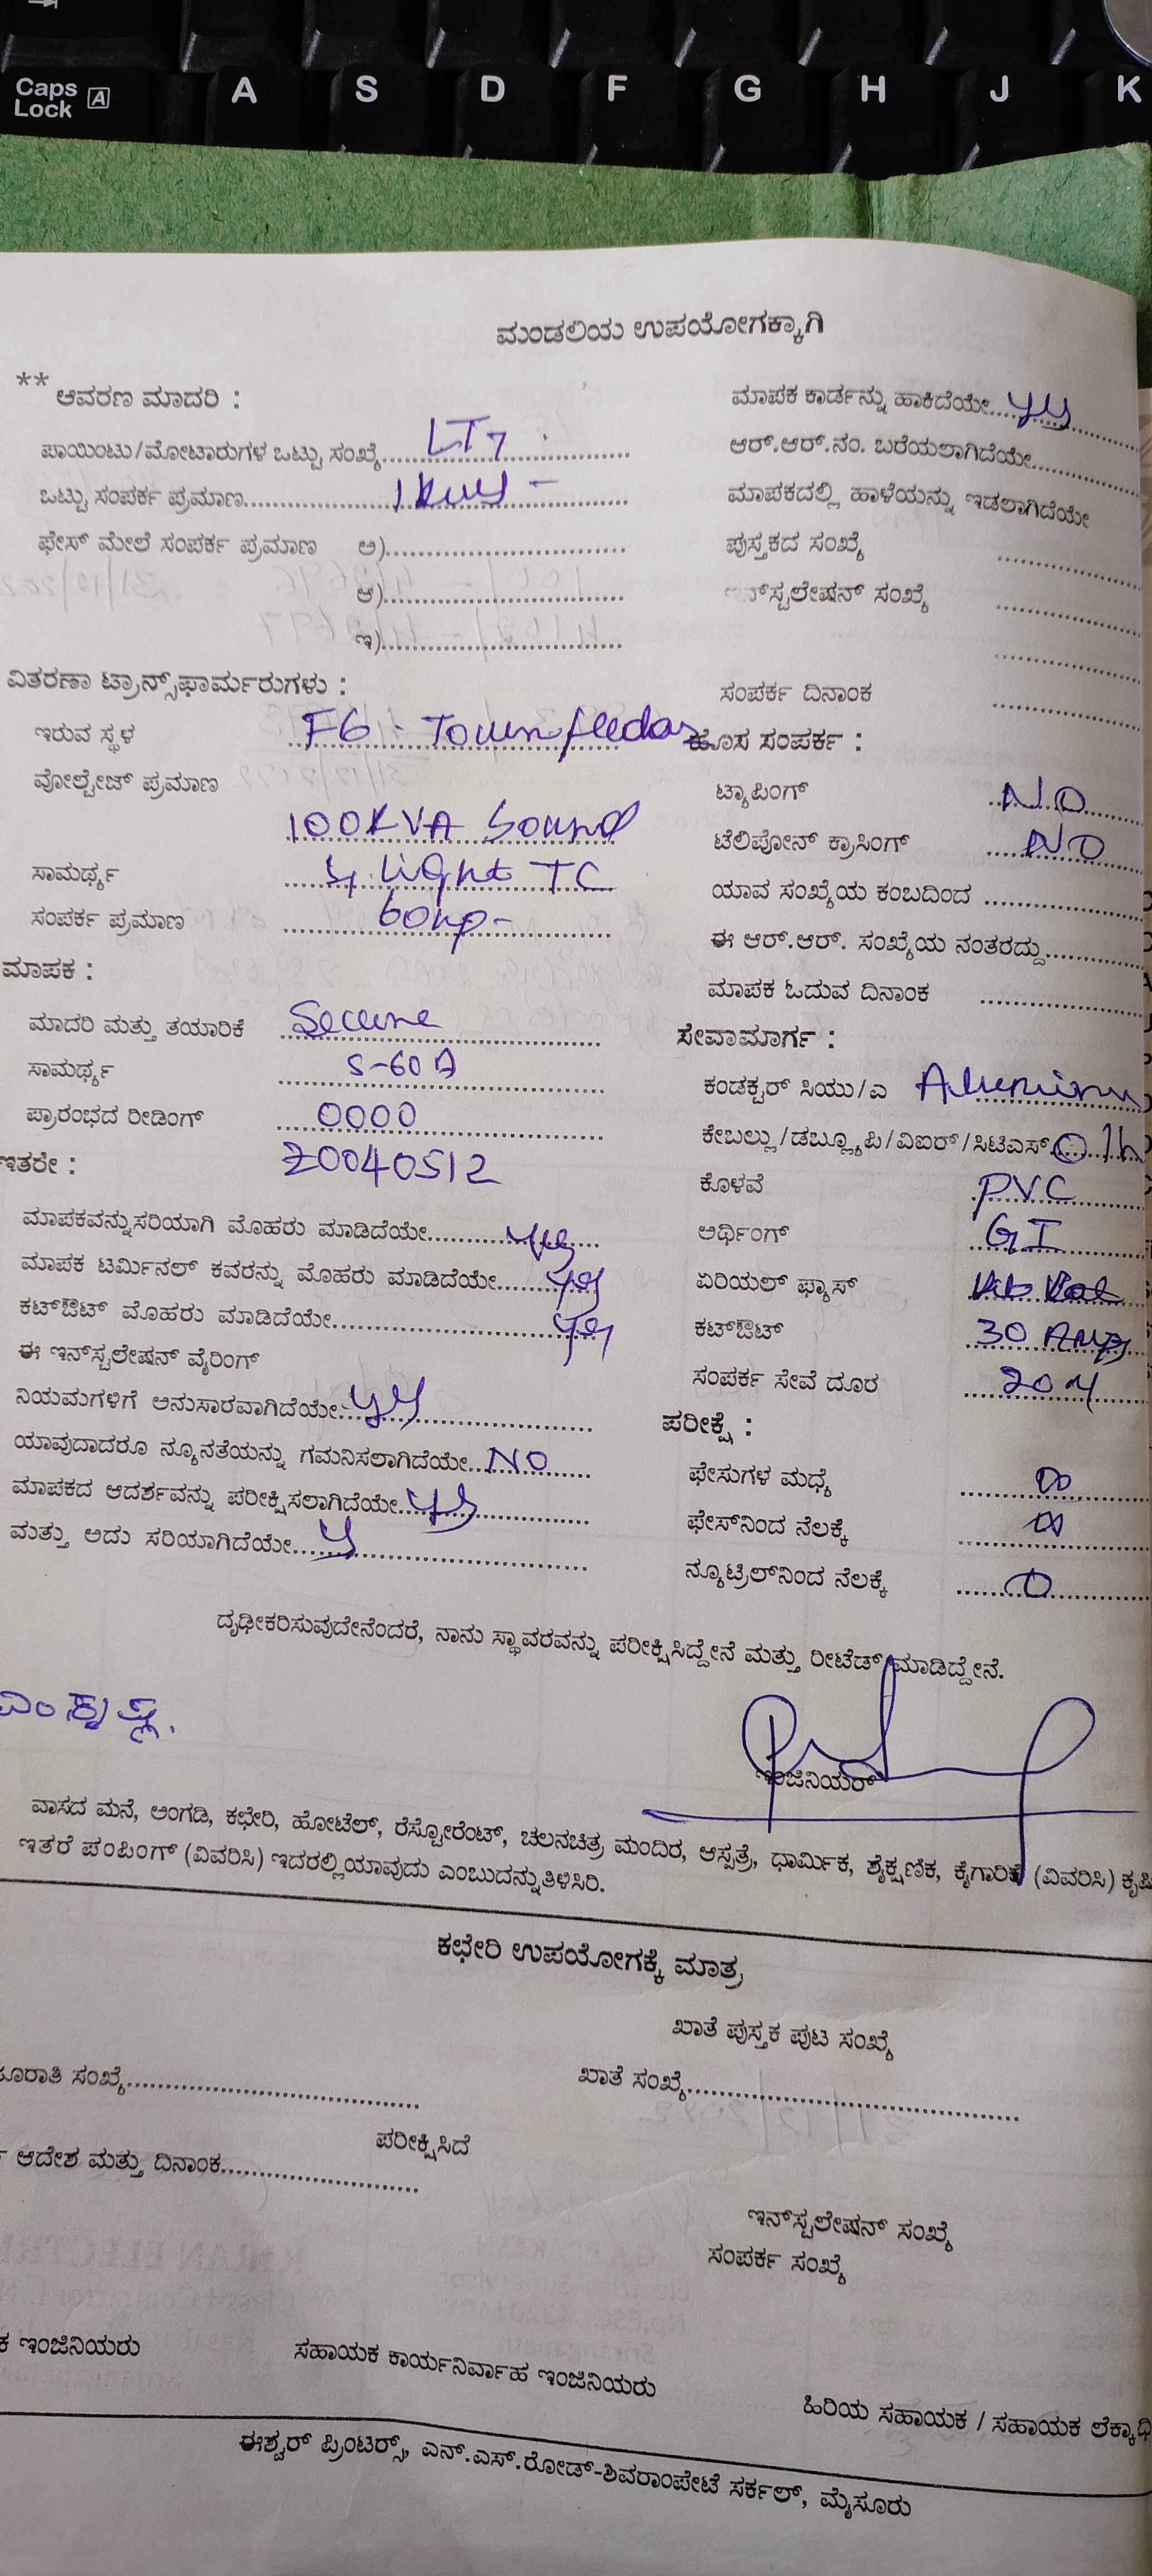 Caps Lock A
A S D F G H J K
ಮಂಡಲಿಯ ಉಪಯೋಗಕ್ಕಾಗಿ
** ಆವರಣ ಮಾದರಿ :
ಪಾಯಿಂಟು/ಮೋಟಾರುಗಳ ಒಟ್ಟು ಸಂಖ್ಯೆ........ LT7
ಒಟ್ಟು ಸಂಪರ್ಕ ಪ್ರಮಾಣ........ 1kw -
ಫೇಸ್ ಮೇಲೆ ಸಂಪರ್ಕ ಪ್ರಮಾಣ ಅ)........
ಆ)........
ಇ)........
ವಿತರಣಾ ಟ್ರಾನ್ಸ್‌ಫಾರ್ಮರುಗಳು :
ಇರುವ ಸ್ಥಳ F6 - Town feeder
ವೋಲ್ಟೇಜ್ ಪ್ರಮಾಣ
100KVA Sound
ಸಾಮರ್ಥ್ಯ & Light TC
ಸಂಪರ್ಕ ಪ್ರಮಾಣ 60hp-
ಮಾಪಕ :
ಮಾದರಿ ಮತ್ತು ತಯಾರಿಕೆ Secure
ಸಾಮರ್ಥ್ಯ 5-60A
ಪ್ರಾರಂಭದ ರೀಡಿಂಗ್ 0000
ಇತರೇ : Z0040512
ಮಾಪಕವನ್ನುಸರಿಯಾಗಿ ಮೊಹರು ಮಾಡಿದೆಯೇ........ yes
ಮಾಪಕ ಟರ್ಮಿನಲ್ ಕವರನ್ನು ಮೊಹರು ಮಾಡಿದೆಯೇ........ yes
ಕಟ್‌ಔಟ್ ಮೊಹರು ಮಾಡಿದೆಯೇ........ yes
ಈ ಇನ್‌ಸ್ಟಲೇಷನ್ ವೈರಿಂಗ್
ನಿಯಮಗಳಿಗೆ ಅನುಸಾರವಾಗಿದೆಯೇ........ yes
ಯಾವುದಾದರೂ ನ್ಯೂನತೆಯನ್ನು ಗಮನಿಸಲಾಗಿದೆಯೇ... NO
ಮಾಪಕದ ಆದರ್ಶವನ್ನು ಪರೀಕ್ಷಿಸಲಾಗಿದೆಯೇ.. yes
ಮತ್ತು ಅದು ಸರಿಯಾಗಿದೆಯೇ........
ಮಾಪಕ ಕಾರ್ಡನ್ನು ಹಾಕಿದೆಯೇ.... yes
ಆರ್.ಆರ್.ನಂ. ಬರೆಯಲಾಗಿದೆಯೇ........
ಮಾಪಕದಲ್ಲಿ ಹಾಳೆಯನ್ನು ಇಡಲಾಗಿದೆಯೇ
ಪುಸ್ತಕದ ಸಂಖ್ಯೆ ........
ಇನ್‌ಸ್ಟಲೇಷನ್ ಸಂಖ್ಯೆ ........
ಸಂಪರ್ಕ ದಿನಾಂಕ ........
ಹೊಸ ಸಂಪರ್ಕ :
ಟ್ಯಾಪಿಂಗ್ NO
ಟೆಲಿಪೋನ್ ಕ್ರಾಸಿಂಗ್ NO
ಯಾವ ಸಂಖ್ಯೆಯ ಕಂಬದಿಂದ ........
ಈ ಆರ್.ಆರ್. ಸಂಖ್ಯೆಯ ನಂತರದ್ದು........
ಮಾಪಕ ಓದುವ ದಿನಾಂಕ ........
ಸೇವಾಮಾರ್ಗ :
ಕಂಡಕ್ಟರ್ ಸಿಯು/ಎ
ಕೇಬಲ್ಲು/ಡಬ್ಲ್ಯೂಪಿ/ವಿಐರ್/ಸಿಟಿಎಸ್. O/h
ಕೊಳವೆ PVC
ಅರ್ಥಿಂಗ್ GI
ಏರಿಯಲ್ ಫ್ಯಾಸ್
ಕಟ್‌ಔಟ್ 30 Amp
ಸಂಪರ್ಕ ಸೇವೆ ದೂರ 20M
ಪರೀಕ್ಷೆ :
ಫೇಸುಗಳ ಮಧ್ಯೆ ∞
ಫೇಸ್‌ನಿಂದ ನೆಲಕ್ಕೆ ∞
ನ್ಯೂಟ್ರಿಲ್‌ನಿಂದ ನೆಲಕ್ಕೆ 0
ದೃಢೀಕರಿಸುವುದೇನೆಂದರೆ, ನಾನು ಸ್ಥಾವರವನ್ನು ಪರೀಕ್ಷಿಸಿದ್ದೇನೆ ಮತ್ತು ರೀಟೆಡ್ ಮಾಡಿದ್ದೇನೆ.
ಇಂಜಿನಿಯರ್
ವಾಸದ ಮನೆ, ಅಂಗಡಿ, ಕಛೇರಿ, ಹೋಟೆಲ್, ರೆಸ್ಟೋರೆಂಟ್, ಚಲನಚಿತ್ರ ಮಂದಿರ, ಆಸ್ಪತ್ರೆ, ಧಾರ್ಮಿಕ, ಶೈಕ್ಷಣಿಕ, ಕೈಗಾರಿಕೆ (ವಿವರಿಸಿ) ಕೃಷಿ
ಇತರೆ ಪಂಪಿಂಗ್ (ವಿವರಿಸಿ) ಇದರಲ್ಲಿಯಾವುದು ಎಂಬುದನ್ನುತಿಳಿಸಿರಿ.
ಕಛೇರಿ ಉಪಯೋಗಕ್ಕೆ ಮಾತ್ರ
ಖಾತೆ ಪುಸ್ತಕ ಪುಟ ಸಂಖ್ಯೆ
ಸಂಖ್ಯೆ........ ಖಾತೆ ಸಂಖ್ಯೆ........
ಪರೀಕ್ಷಿಸಿದೆ
ಆದೇಶ ಮತ್ತು ದಿನಾಂಕ........
ಇನ್‌ಸ್ಟಲೇಷನ್ ಸಂಖ್ಯೆ
ಸಂಪರ್ಕ ಸಂಖ್ಯೆ
ಕ ಇಂಜಿನಿಯರು ಸಹಾಯಕ ಕಾರ್ಯನಿರ್ವಾಹ ಇಂಜಿನಿಯರು
ಹಿರಿಯ ಸಹಾಯಕ / ಸಹಾಯಕ ಲೆಕ್ಕಾಧಿ
ಈಶ್ವರ್ ಪ್ರಿಂಟರ್ಸ್, ಎನ್.ಎಸ್.ರೋಡ್-ಶಿವರಾಂಪೇಟೆ ಸರ್ಕಲ್, ಮೈಸೂರು